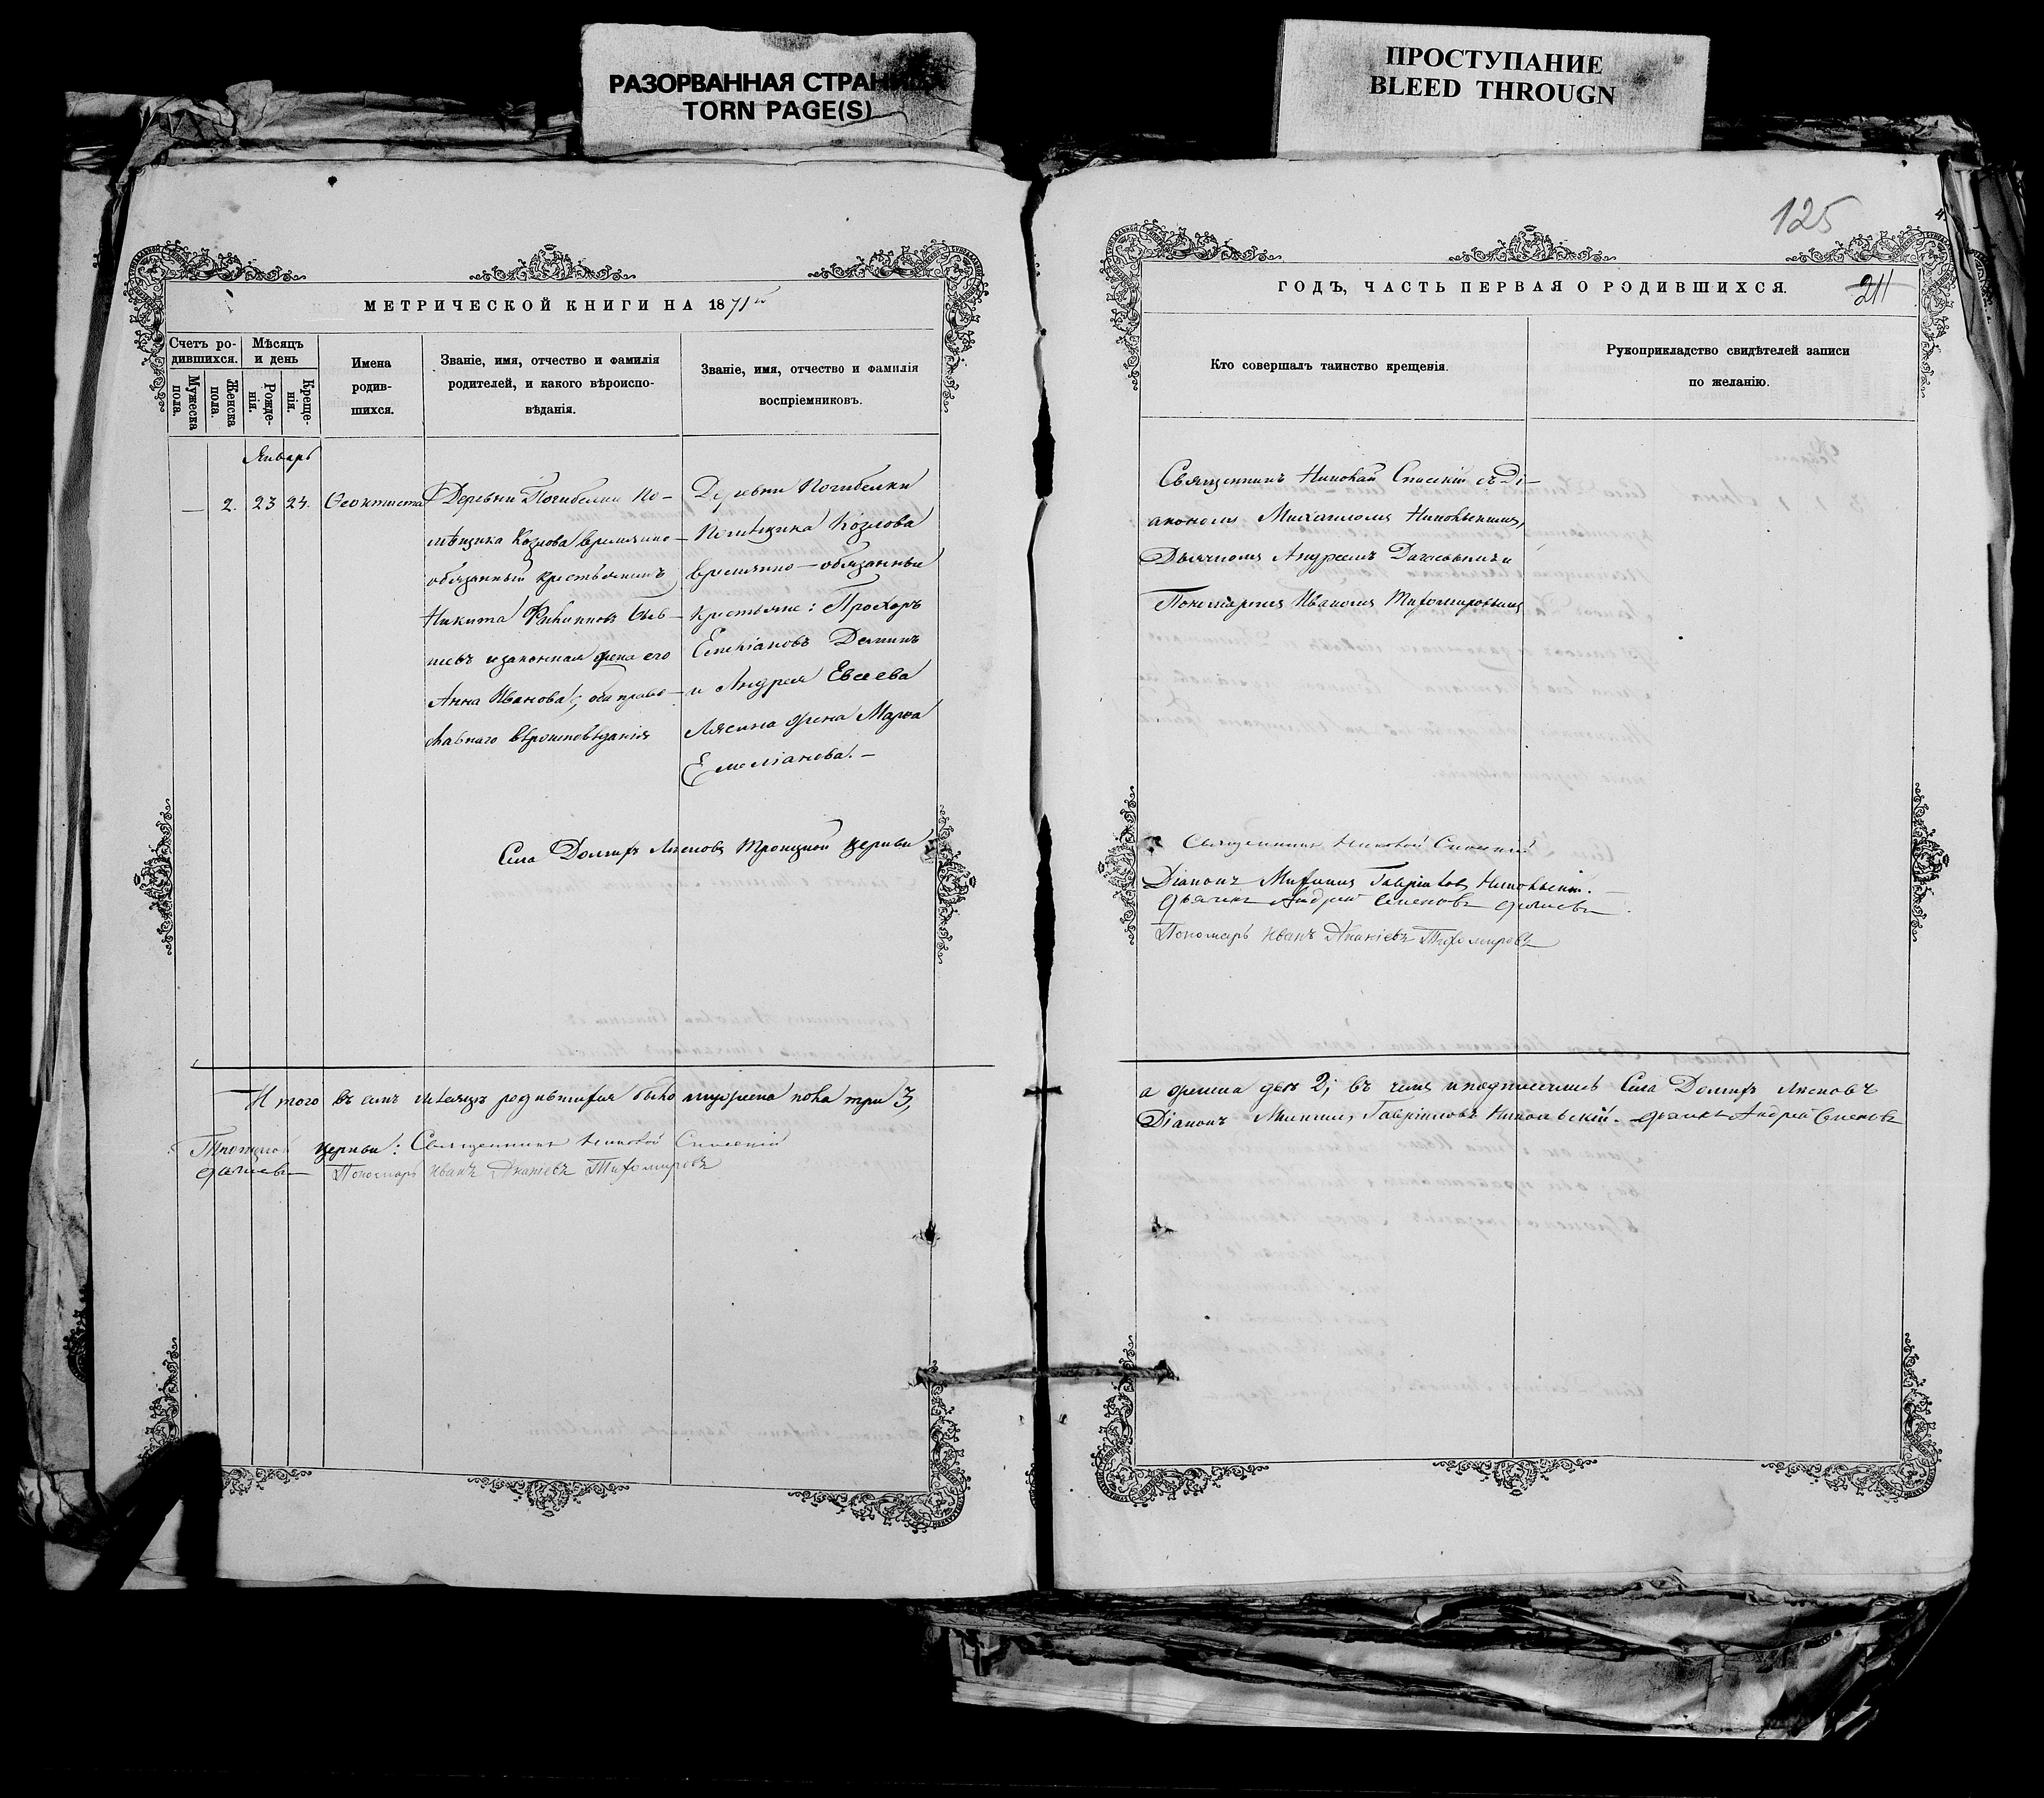 РАЗОРВАННАЯ СТРАН
TORN PAGE(S)
ПРОСТУПАНИЕ
BLEED THROUGN
МЕТРИЧЕСКОЙ КНИГИ НА 1871
Счетъ ро-
дившихся.
Мужеска
пола.
Женска
пола.
Мѣсяцъ
и день
Рожде-
нія.
Креще-
нія.
Имена
родив-
шихся.
Званіе, имя, отчество и фамилія
родителей, и какого вѣроиспо-
вѣданія.
Званіе, имя, отчество и фамилія
воспріемниковъ.
Январь
— 2. 23 24. Ѳеоктиста
Деревни Погибелки По-
мѣщика Козлова временно-
обязанный крестьянинъ
Никита Филиповъ
и законная жена его
Анна Иванова; оба право-
славнаго вѣроисповѣданія
Деревни Погибелки
Помѣщика Козлова
временно-обязанные
крестьяне: Прохоръ
Деминъ
и Андрея Евсеева
жена Марѳа
Емеліанова. —
Села Троицкой церкви
Итого въ семъ мѣсяцѣ родившихся было мужеска пола три 3,
Троицкой церкви: Священникъ Николай Спасскій
Пономарь Иванъ Ананіевъ Тихомировъ
125
4.
ГОДЪ, ЧАСТЬ ПЕРВАЯ О РОДИВШИХСЯ.
211
Кто совершалъ таинство крещенія.
Рукоприкладство свидѣтелей записи
по желанію.
Священникъ Николай Спасскій съ Ді-
акономъ Михаиломъ Никольскимъ,
Дьячкомъ Андреемъ и
Пономаремъ Иваномъ Тихомировымъ
Священникъ Николай Спасскій
Діаконъ Гавріиловъ Никольскій.
Дьячекъ Андрей Семеновъ
Пономарь Иванъ Ананіевъ Тихомировъ
а женска двѣ 2; въ чемъ и подписались Села
Діаконъ Гавріиловъ Никольскій. Дьячекъ Андрей Семеновъ